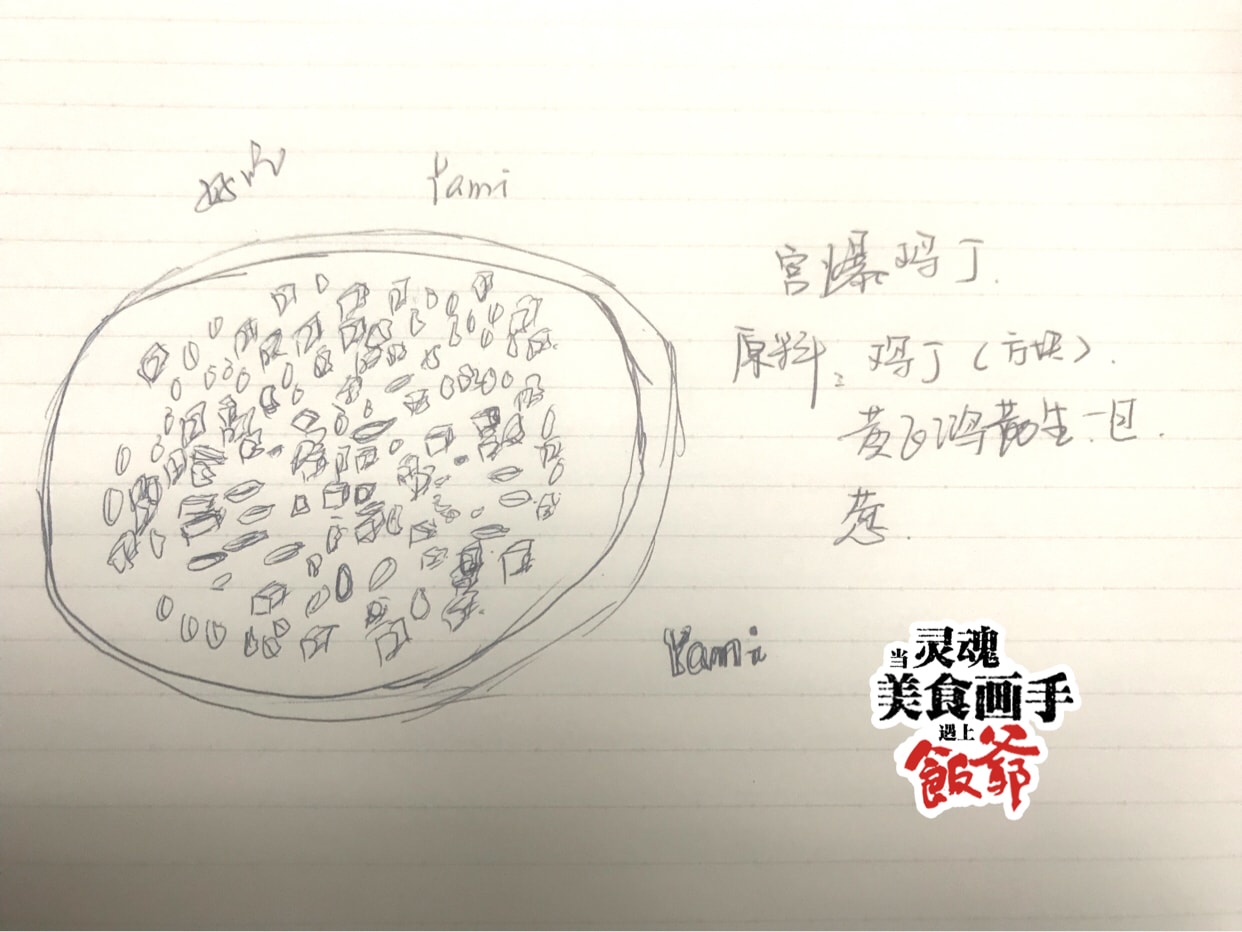 好吃
Yami
宫爆鸡丁.
原料: 鸡丁(方块).
黄飞鸿花生一包.
葱.
Yami
当灵魂
美食画手
遇上
飯爺